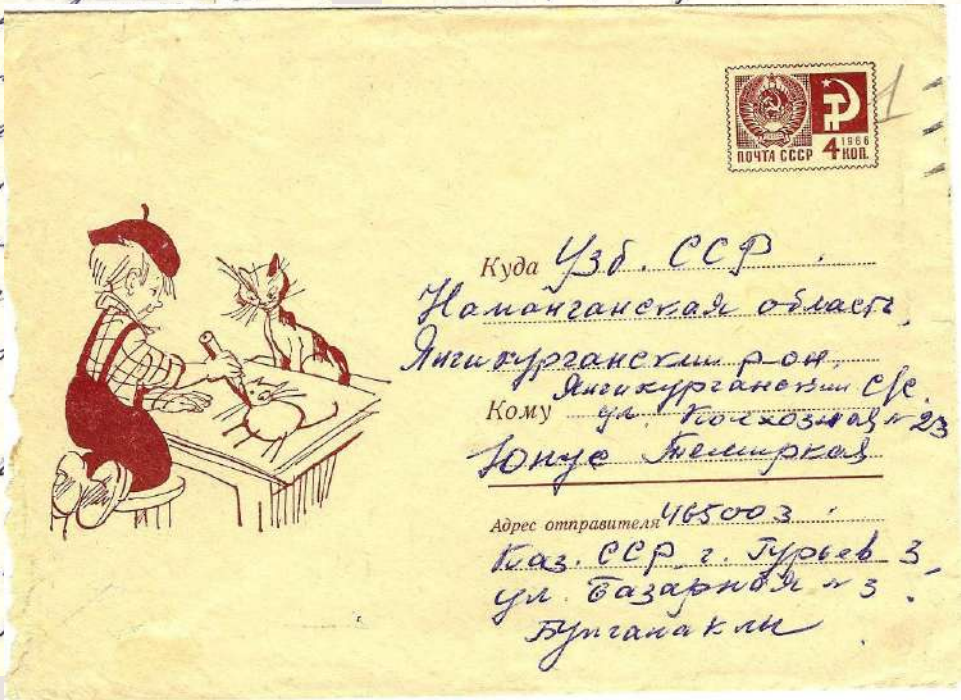 ПОЧТА СССР 4 1966 КОП.
Куда Узб. ССР.
Наманганская область,
Янгикурганский р-он,
Янгикурганский с/с.
Кому ул. Колхозная № 23
Юнус Темиркая
Адрес отправителя 465003
Каз. ССР г. Гурьев 3,
ул. Базарная № 3.